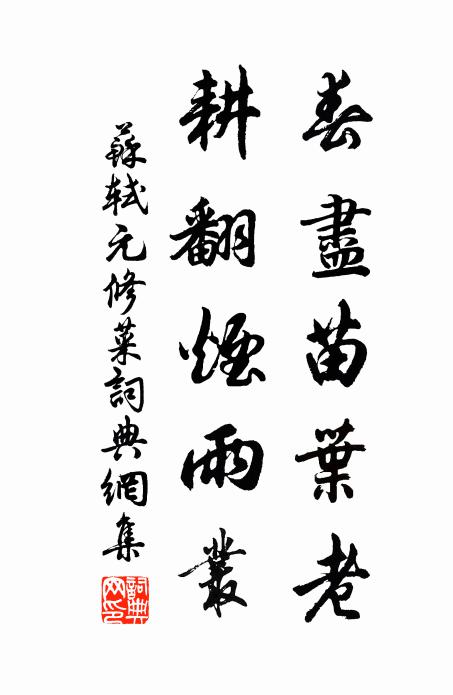 春盡苗葉老
耕翻煙雨叢
蘇軾元修菜詞典網集
詞典網印